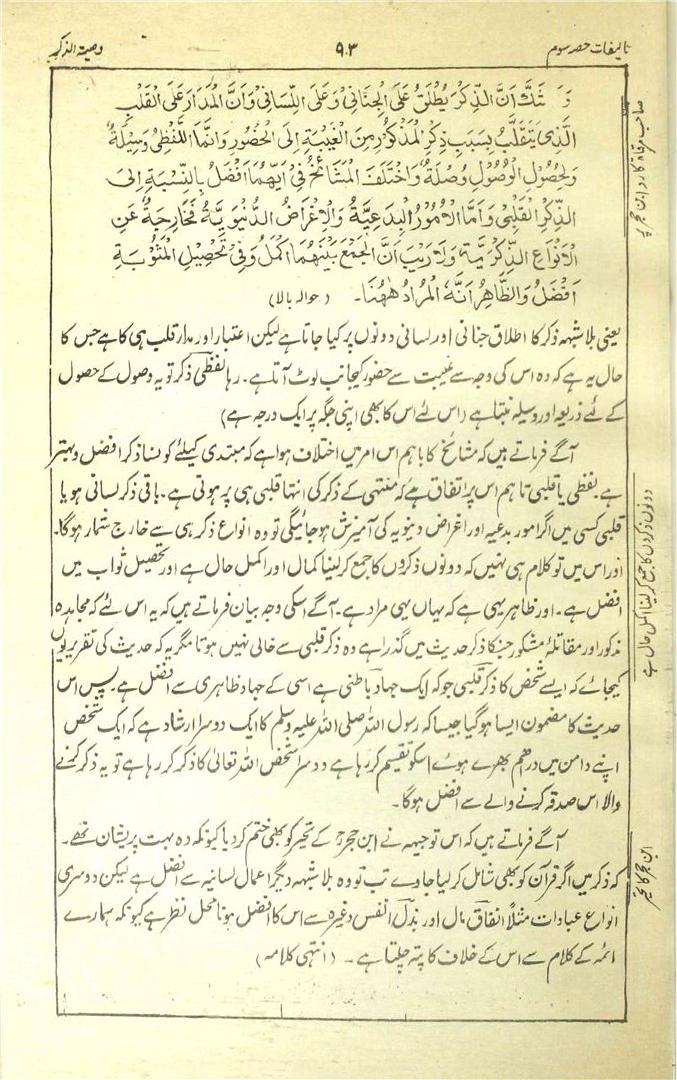 تالیفات حصہ سوم
۹۰۳
وصیۃ الذکر
وَ شَكَّ اَنَّ الذِّكْرَ يُطْلَقُ عَلَى الْجَنَانِيْ وَعَلَى اللِّسَانِيْ وَاَنَّ الْمَدَارَ عَلَى الْقَلْبِ
الَّذِيْ يَتَقَلَّبُ بِسَبَبِ ذِكْرِ الْمَذْكُوْرِ مِنَ الْغَيْبَةِ اِلَى الْحُضُوْرِ وَاِنَّمَا اللَّفْظِيُّ وَسِيْلَةٌ
وَلِحُصُوْلِ الْوُصُوْلِ وُصْلَةٌ وَاخْتَلَفَ الْمَشَائِخُ فِيْ اَيِّهِمَا اَفْضَلُ بِالنِّسْبَةِ اِلَى
الذِّكْرِ الْقَلْبِيْ وَاَمَّا الْاُمُوْرُ الْبِدْعِيَّةُ وَالْاِغْرَاضُ الدُّنْيَوِيَّةُ فَخَارِجَةٌ عَنِ
الْاَنْوَاعِ الذِّكْرِيَّةِ وَلَا رَيْبَ اَنَّ الْجَمْعَ بَيْنَهُمَا اَكْمَلُ وَفِيْ تَحْصِيْلِ الْمَثُوْبَةِ
اَفْضَلُ وَالظَّاهِرُ اَنَّهُ الْمُرَادُ هٰهُنَا۔ (حوالہ بالا)
یعنی بلاشبہہ ذکر کا اطلاق جنانی اور لسانی دونوں پر کیا جاتا ہے لیکن اعتبار اور مدار قلب ہی کا ہے جس کا
حال یہ ہے کہ وہ اس کی وجہ سے غیبت سے حضور کیجانب لوٹ آتا ہے۔ رہا لفظی ذکر تو یہ وصول کے حصول
کے لئے ذریعہ اور وسیلہ بنتا ہے (اس لئے اس کا بھی اپنی جگہ پر ایک درجہ ہے)
آگے فرماتے ہیں کہ مشائخ کا باہم اس امر میں اختلاف ہوا ہے کہ مبتدی کیلئے کونسا ذکر افضل و بہتر
ہے لفظی یا قلبی تاہم اس پر اتفاق ہے کہ منتہی کے ذکر کی انتہا قلبی ہی پر ہوتی ہے۔ باقی ذکر لسانی ہو یا
قلبی کسی میں اگر امور بدعیہ اور اغراض دینویہ کی آمیزش ہوجائیگی تو وہ انواع ذکر ہی سے خارج شمار ہوگا۔
اور اس میں تو کلام ہی نہیں کہ دونوں ذکروں کا جمع کرلینا کمال اور اکمل حال ہے اور تحصیل ثواب میں
افضل ہے۔ اور ظاہر یہی ہے کہ یہاں یہی مراد ہے۔ آگے اسکی وجہ بیان فرماتے ہیں کہ یہ اس لئے کہ مجاہدہ
مذکور اور مقاتلۂ مشکور جنکا ذکر حدیث میں گذرا ہے وہ ذکر قلبی سے خالی نہیں ہوتا مگر یہ کہ حدیث کی تقریر یوں
کیجائے کہ ایسے شخص کا ذکر قلبی جو کہ ایک جہاد باطنی ہے اسی کے جہاد ظاہری سے افضل ہے۔ پس اس
حدیث کا مضمون ایسا ہوگیا جیسا کہ رسول اللہ صلی اللہ علیہ وسلم کا ایک دوسرا ارشاد ہے کہ ایک شخص
اپنے دامن میں درھم بھرے ہوئے اسکو تقسیم کر رہا ہے دوسرا شخص اللہ تعالیٰ کا ذکر کر رہا ہے تو یہ ذکر کرنے
والا اس صدقہ کرنے والے سے افضل ہوگا۔
آگے فرماتے ہیں کہ اس توجیہہ نے ابن حجرؒ کے تحیر کو بھی ختم کردیا کیونکہ وہ بہت پریشان تھے۔
کہ ذکر میں اگر قرآن کو بھی شامل کرلیا جاوے تب تو وہ بلاشبہہ دیگر اعمال لسانیہ سے افضل ہے لیکن دوسری
انواع عبادات مثلاً انفاق مال اور بذل النفس وغیرہ سے اس کا افضل ہونا محل نظر ہے کیونکہ ہمارے
ائمہ کے کلام سے اس کے خلاف کا پتہ چلتا ہے۔ (انتہی کلامہ)
صاحب مرقاۃ کا رد ابن حجر پر
دونوں ذکروں کا جمع کرلینا اکمل حال ہے
ابن حجر کا تحیر